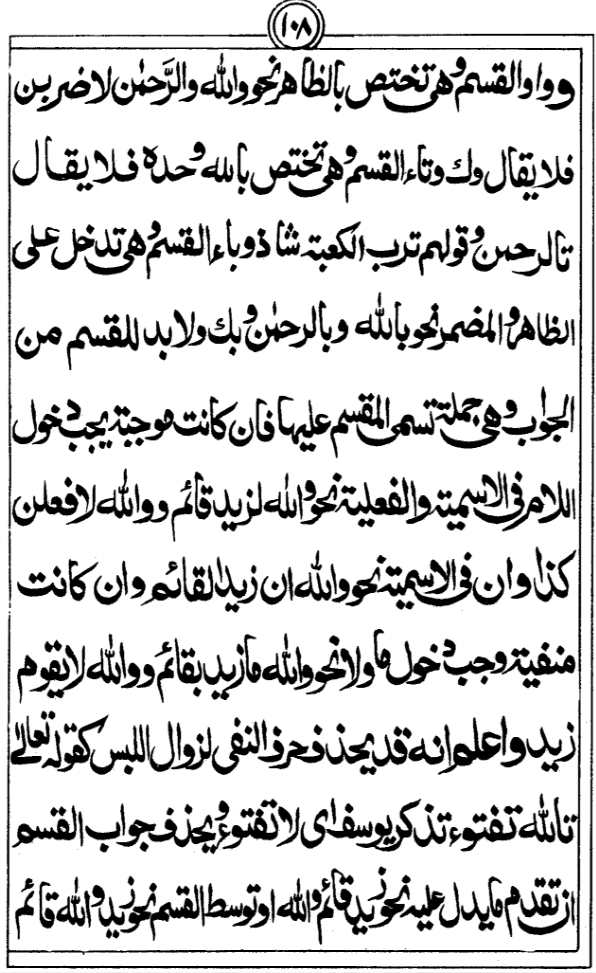 ١٠٨
وواو القسم وهی تختص بالظاهر نحو والله والرَّحمٰن لاضربن
فلا یقال وك وتاء القسم وهی تختص بالله وحده فلا یقال
تالرحمن وقولهم ترب الکعبة شاذ وباء القسم وهی تدخل علی
الظاهر والمضمر نحو بالله وبالرحمٰن وبك ولابد للقسم من
الجواب وهی جملة تسمی المقسم علیها فان کانت موجبة یجب دخول
اللام فی الاسمیة والفعلیة نحو والله لزید قائم ووالله لافعلن
کذا وان فی الاسمیة نحو والله ان زیدا لقائم وان کانت
منفیة وجب دخول ما ولا نحو والله ما زید بقائم ووالله لا یقوم
زید واعلم انه قد یحذف حرف النفی لزوال اللبس کقوله تعالیٰ
تالله تفتوء تذکر یوسف ای لا تفتوء ویحذف جواب القسم
ان تقدم ما یدل علیه نحو زید قائم والله او توسط القسم نحو زید والله قائم